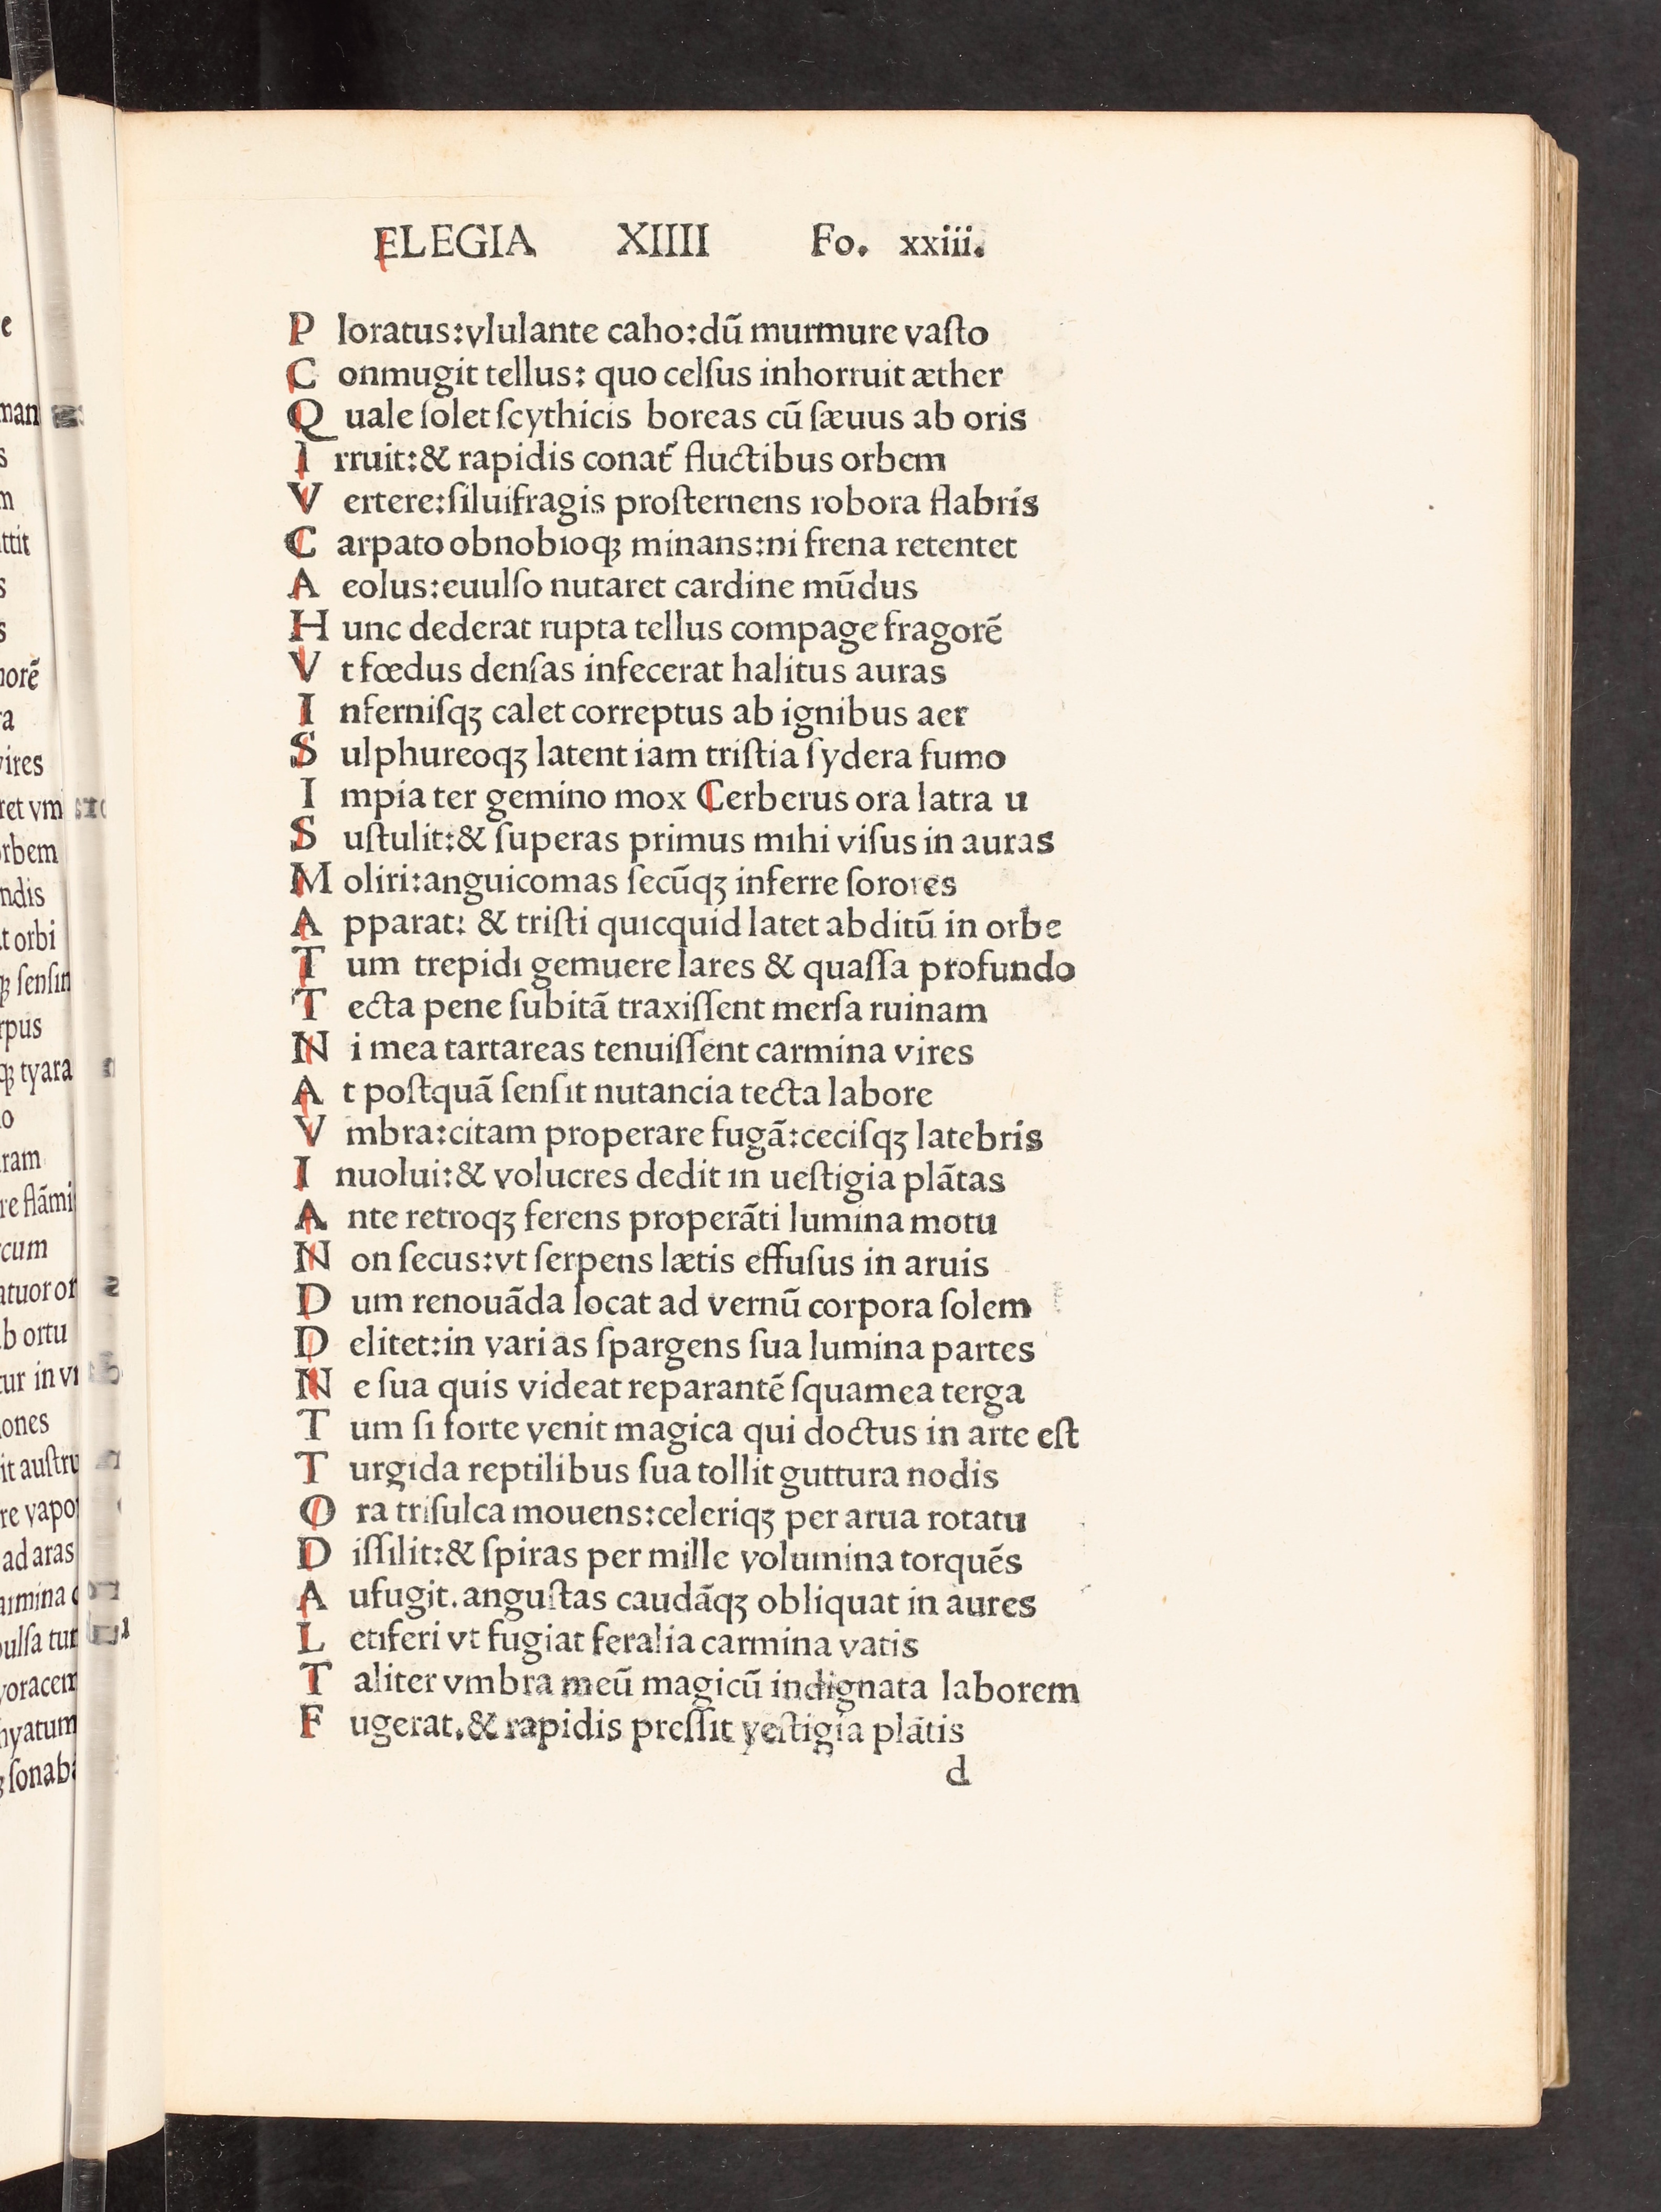 ELEGIA XIIII Fo. xxiii.
P loratus:vlulante caho:dũ murmure vaſto
C onmugit tellus: quo celſus inhorruit æther
Q uale ſolet ſcythicis boreas cũ ſæuus ab oris
I rruit:& rapidis conat᷒ fluctibus orbem
V ertere:ſiluifragis proſternens robora flabris
C arpato obnobioqꝫ minans:ni frena retentet
A eolus:euulſo nutaret cardine mũdus
H unc dederat rupta tellus compage fragorẽ
V t fœdus denſas infecerat halitus auras
I nferniſqꝫ calet correptus ab ignibus aer
S ulphureoqꝫ latent iam triſtia ſydera fumo
I mpia ter gemino mox Cerberus ora latra u
S uſtulit:& ſuperas primus mihi viſus in auras
M oliri:anguicomas ſecũqꝫ inferre ſorores
A pparat: & triſti quicquid latet abditũ in orbe
T um trepidi gemuere lares & quaſſa profundo
T ecta pene ſubitã traxiſſent merſa ruinam
N i mea tartareas tenuiſſent carmina vires
A t poſtquã ſenſit nutancia tecta labore
V mbra:citam properare fugã:ceciſqꝫ latebris
I nuolui:& volucres dedit in ueſtigia plãtas
A nte retroqꝫ ferens properãti lumina motu
N on ſecus:vt ſerpens lætis effuſus in aruis
D um renouãda locat ad vernũ corpora ſolem
D elitet:in vari as ſpargens ſua lumina partes
N e ſua quis videat reparantẽ ſquamea terga
T um ſi forte venit magica qui doctus in arte eſt
T urgida reptilibus ſua tollit guttura nodis
O ra triſulca mouens:celeriqꝫ per arua rotatu
D iſſilit:& ſpiras per mille volumina torquẽs
A ufugit.anguſtas caudãqꝫ obliquat in aures
L etiferi vt fugiat feralia carmina vatis
T aliter vmbra meũ magicũ indignata laborem
F ugerat.& rapidis preſſit veſtigia plãtis
d